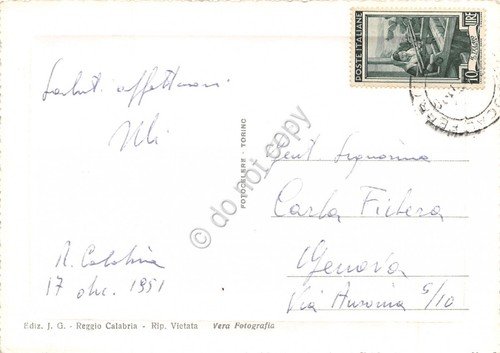 Saluti affettuosi
R. Calabria
17 dic. 1951
Ediz. J. G. - Reggio Calabria - Rip. Vietata Vera Fotografia
FOTOCELERE - TORINO
© do not copy
POSTE ITALIANE
LIRE 10
Gent. Signorina
Carla
Genova
Via Ausonia 5/10